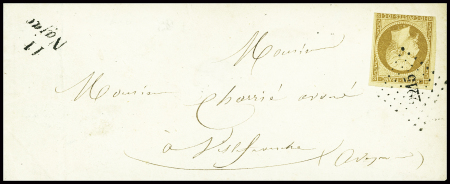 11
Najac
Monsieur
Monsieur Charrié avoué
à Villefranche
(Aveyron)